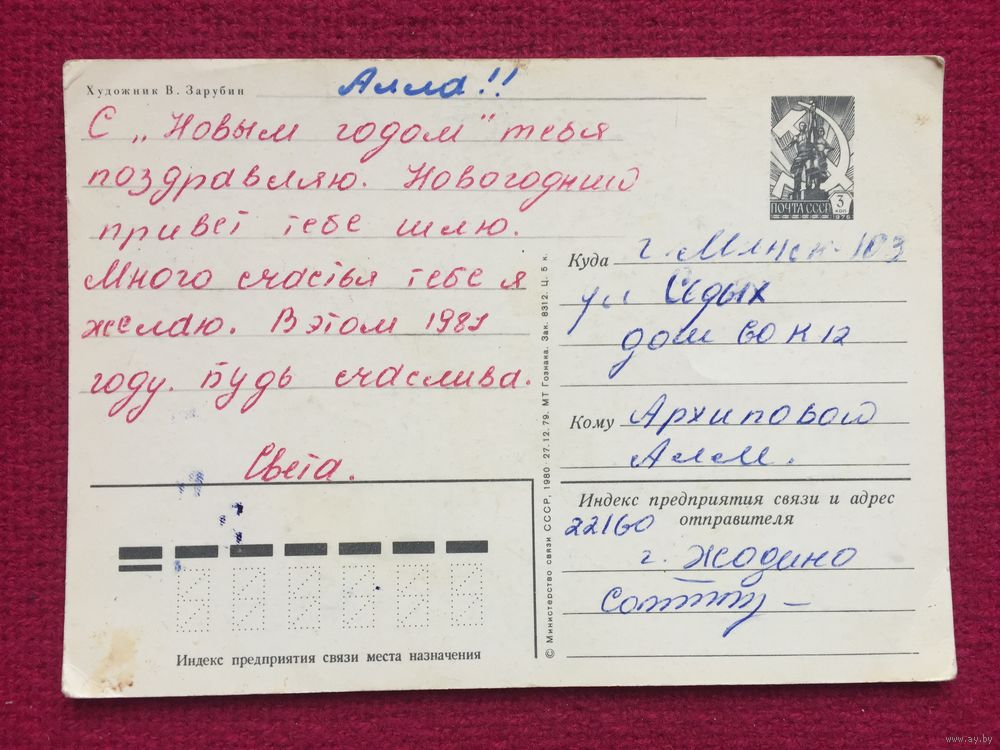 Художник В. Зарубин
Алла!!
С „Новым годом" тебя
поздравляю. Новогодний
привет тебе шлю.
Много счастья тебе я
желаю. В этом 1981
году. Будь счастлива.
Света.
ПОЧТА СССР 3
КОП
1976
Куда г. Минск-103
ул Седых
дом 60 к 12
Кому Архиповой
Алле.
Индекс предприятия связи и адрес
отправителя
22160
г. Жодино
Индекс предприятия связи места назначения
© Министерство связи СССР, 1980 27.12.79. МТ Гознака. Зак. 8312. Ц. 5 к.
www.ay.by